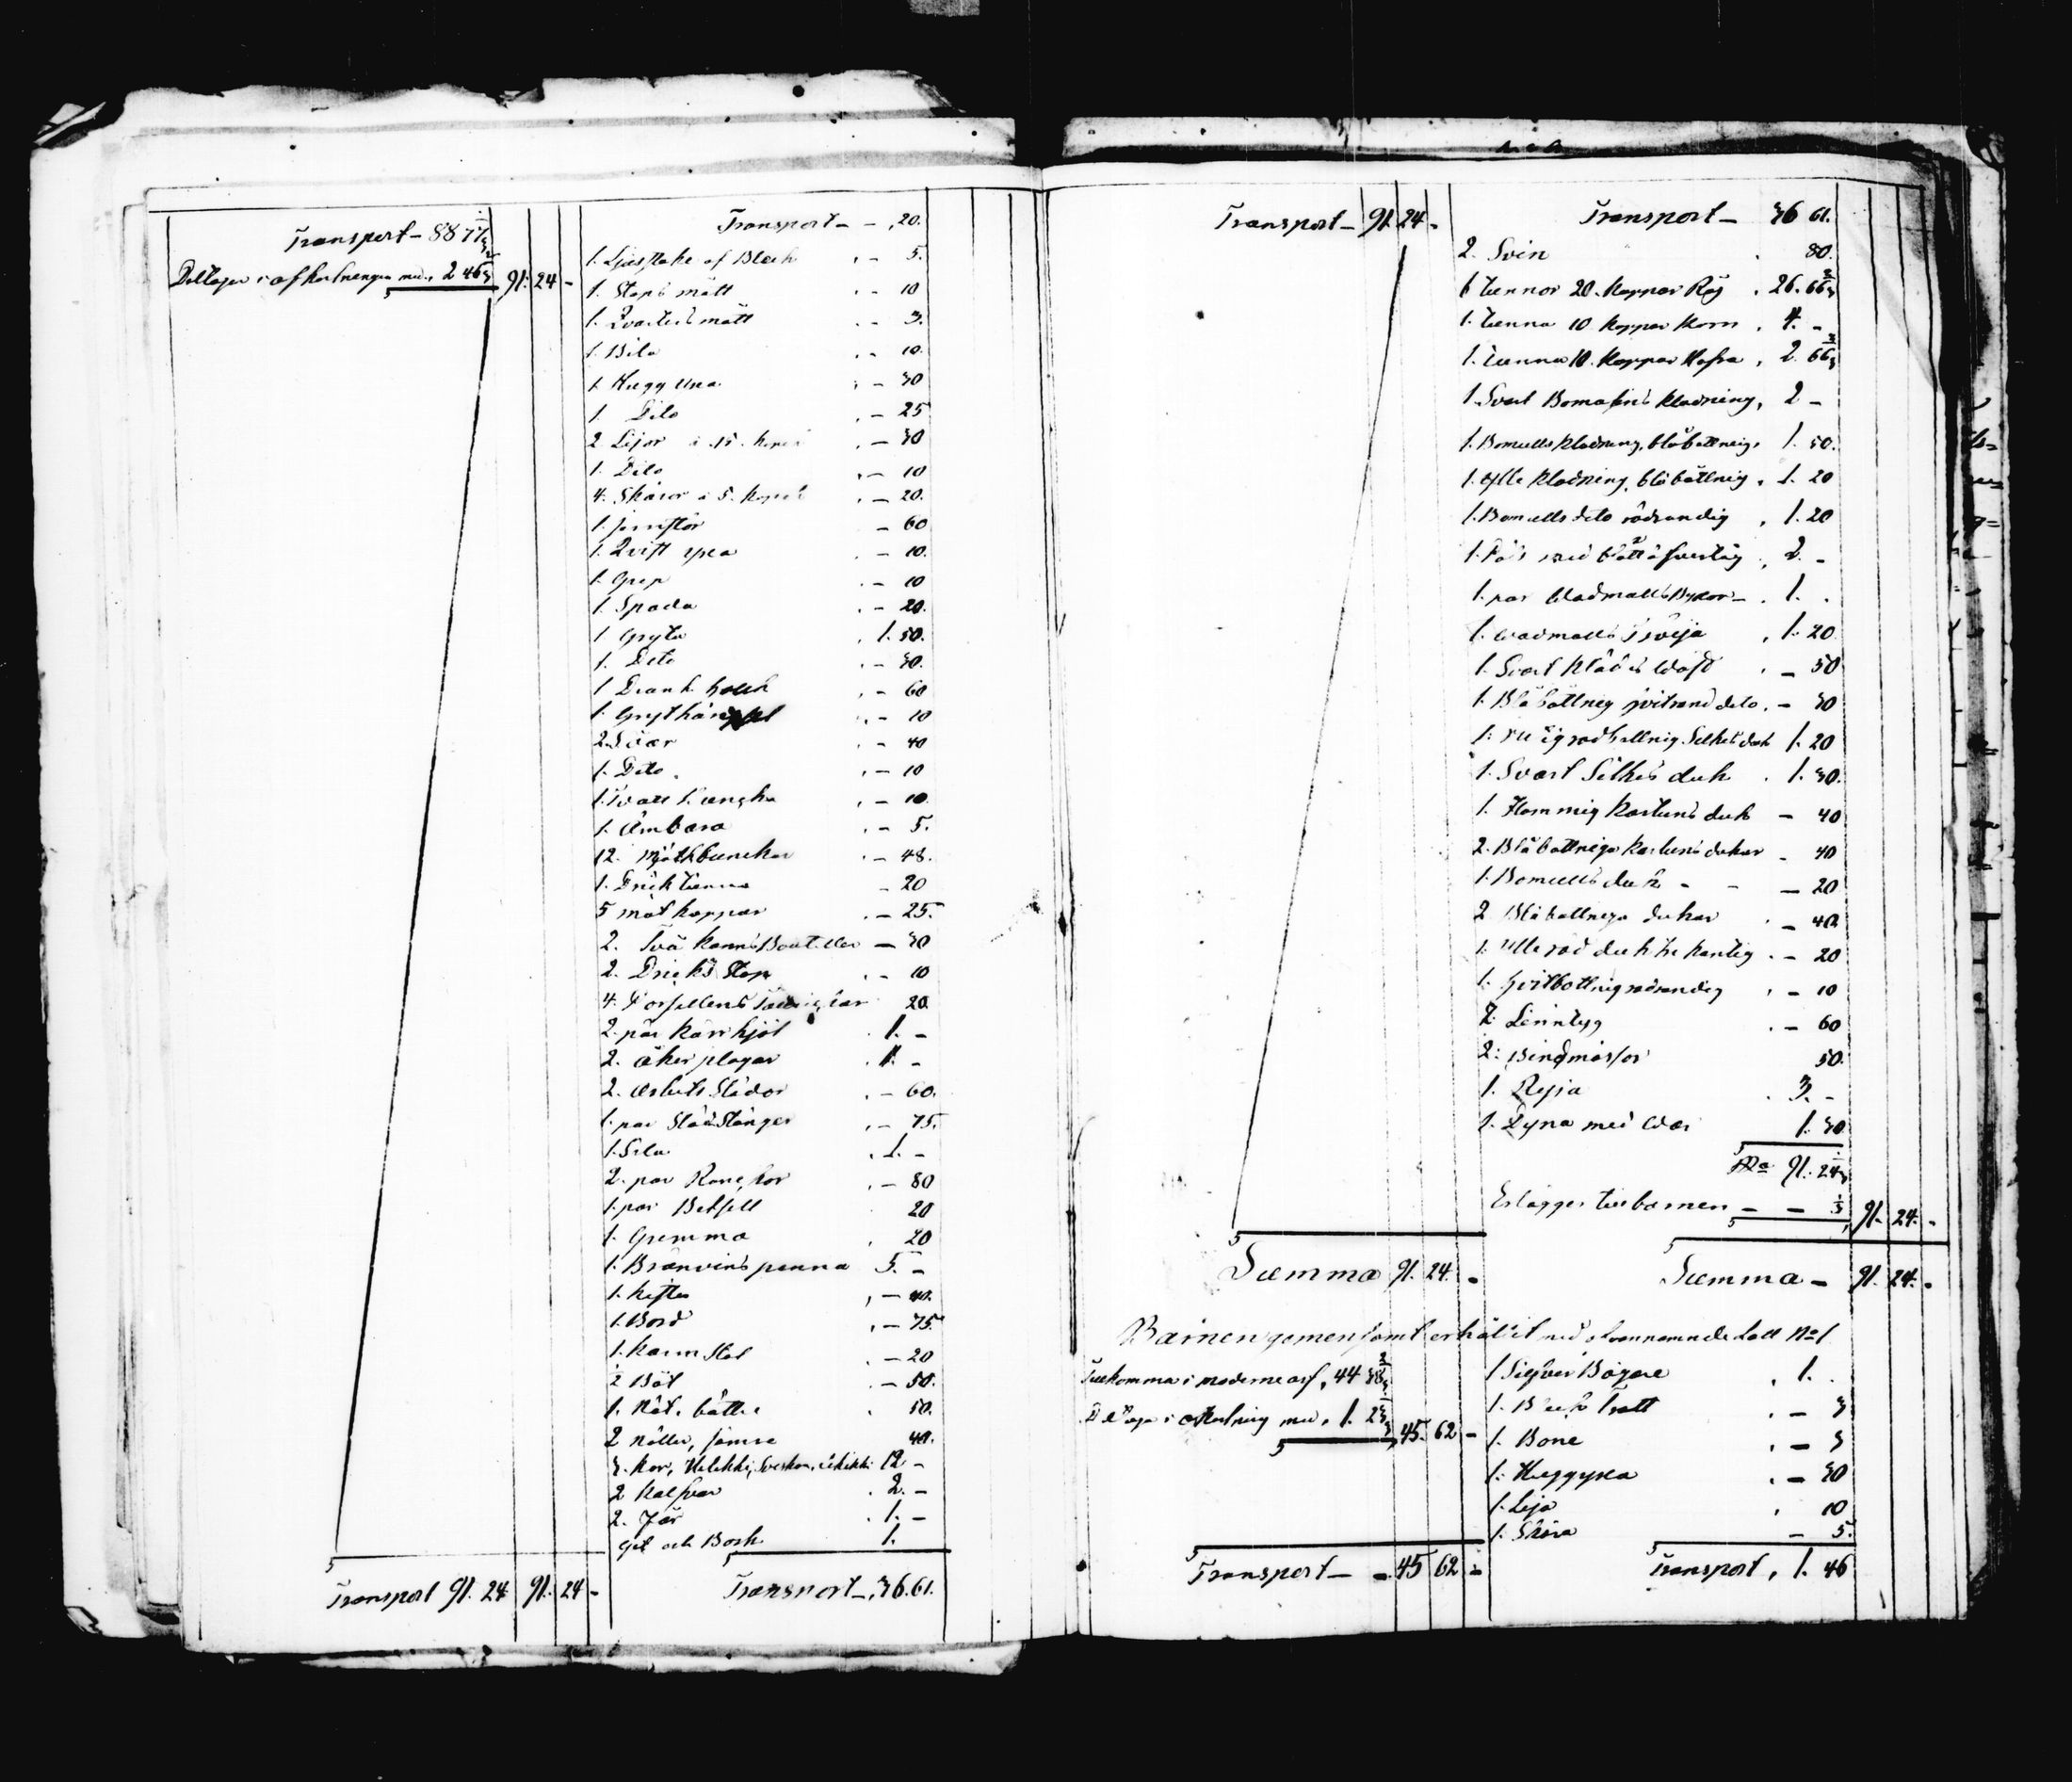 Transport - 88 77
Deltager i afkortningen med, 2 46 91. 24 -
Transport 91. 24 91. 24 -
Transport - - , 20.
1. Ljusstake af Bleck , - 5.
1. Stops mått , - 10
1. Qvarters mått , - 3.
1. Bila , - 10.
1. Hugg yxa , - 30
1 Dito , - 25
2 Lijor à 15. kopek , - 30
1. Dito , - 10
4. Skäror à 5. kopek , - 20.
1. jernstör - 60
1. Qvist yxa , - 10.
1. Grep , - 10
1. Spada , - 20.
1 Gryta , 1. 50.
1. Dito , - 30.
1 Drank , - 60
1. , - 10
2. Såar , - 40
1. Dito , - 10
1. , - 10.
1. Ämbara , - 5.
12. Mjölkbunckar , - 48.
1. Drick tunna - 20
5 mat koppar , - 25.
2. Två kanns Bouteller - 30
2. Dricks Stop , - 10
4. Porsellens 20.
2. par kärrhjol . 1. -
2. åker plogar . 1. -
2. arbets Slädor , - 60.
1. par Stänger , - 75.
1. Sela , 1. -
2. par , - 80
1. par Betsell 20
1. Grimma . 20
1. Bränvins panna 5. -
1. kista , - 40.
1. Bord , - 75.
1. karm Stol , - 20
2 Båt , - 50.
1. Nöt. . 50.
2 40.
3. kor, 12 -
2 kalfvar . 2. -
2. Får . 1. -
Get och Bock 1.
Transport - , 36. 61.
Transport - 91. 24 -
Summa 91. 24. -
Transport - 36 61.
2. Svin . 80.
6 tunnor 20. kappar Råg , 26. 66 2/3
1. tunna 10 kappar korn , 4. -
1. tunna 10. kappar Hafra , 2. 66 2/3
1. Svart klädning, 2 -
1. Bomulls klädning, blåbottnig, 1. 50.
1. Ylle klädning, blåbottnig, 1. 20
1. Bomulls dito rödrandig , 1. 20
1. med blått öfvertåg , 2. -
1. par Byxor - . 1. .
1. wadmals Tröija , 1. 20
1. Svart klädes , - 50
1. Blåbottnig hvitrand dito. - 30
1. rödbottnig Silkes duk 1. 20
1. Svart Silkes duk . 1. 30.
1. Flammig kartuns duk - 40
2. Blåbottniga kartuns dukar - 40
1. Bomulls duk - - - 20
2 Blåbottniga dukar , - 40
1. Ylle röd duk kantig . - 20
1. hvitbottnig rödrandig , - 10
7. Linntyg . - 60
2. Bindmössor 50.
1. Ryja . 3. -
1. Dyna med War 1. 30
91. 24
Erlägges till barnen - - 1/3 91. 24. -
Summa - 91. 24. -
Barnen gemensamt erhållit med ofvannämnde Lott No 1
Tillkomma i moderne arf, 44 38
Deltaga i afkortning med, 1. 23 45. 62 -
Transport - - 45 62 -
1 Silfver Bägare , 1. .
1. Bleck Tratt . - 3
1. Bone . - 3
1. Huggyxa . - 30
1. Lija , 10
1. Skära - 5.
Transport , 1. 46